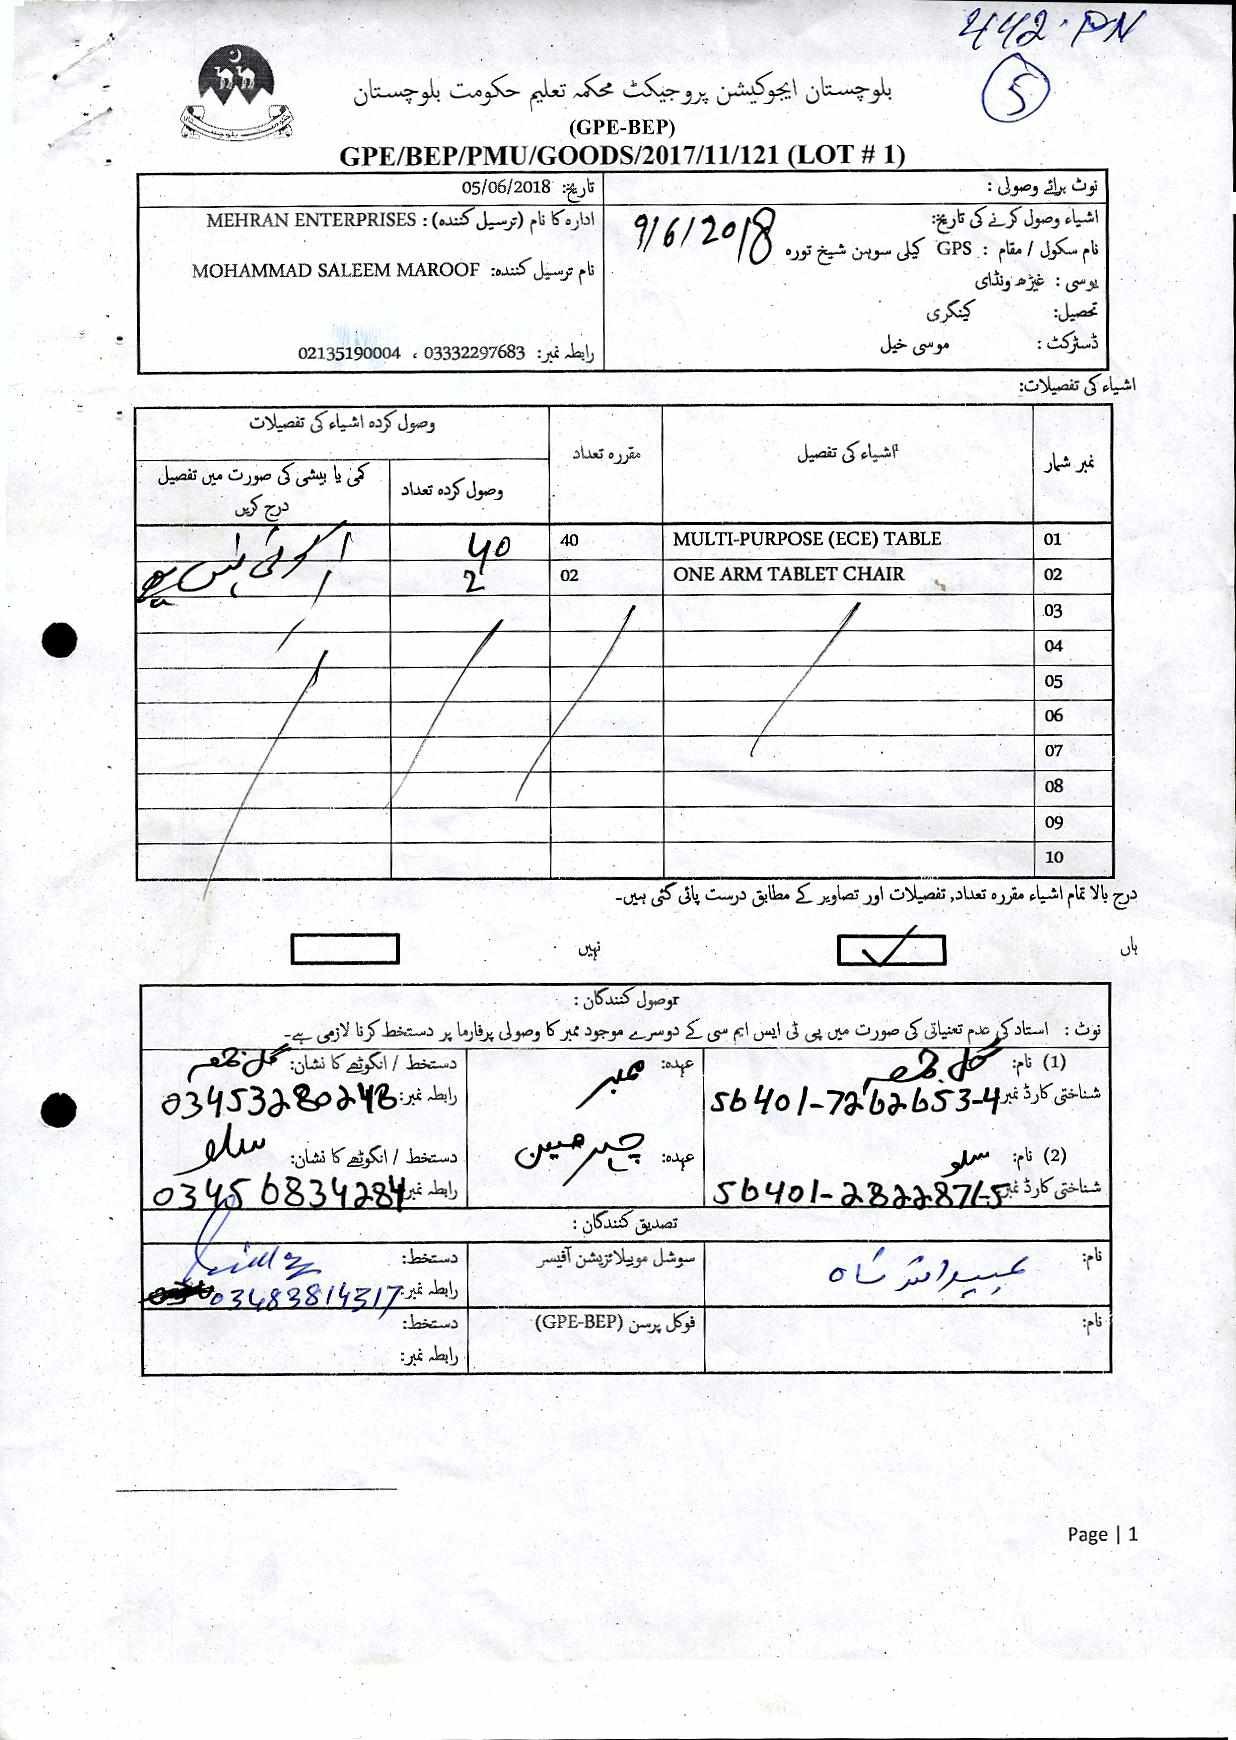 442-PN
5
بلوچستان ایجوکیشن پروجیکٹ محکمہ تعلیم حکومت بلوچستان
(GPE-BEP)
GPE/BEP/PMU/GOODS/2017/11/121 (LOT # 1)
نوٹ برائے وصولی :
تاریخ: 05/06/2018
اشیاء وصول کرنے کی تاریخ: 9/6/2018
ادارہ کا نام (ترسیل کنندہ) : MEHRAN ENTERPRISES
نام سکول / مقام : GPS کیلی سوہن شیخ تورہ
نام ترسیل کنندہ: MOHAMMAD SALEEM MAROOF
یوسی : غیڑھ ونڈای
تحصیل: کینگری
ڈسٹرکٹ : موسی خیل
رابطہ نمبر: 03332297683 ، 02135190004
اشیاء کی تفصیلات:
نمبر شمار
اشیاء کی تفصیل
مقررہ تعداد
وصول کردہ اشیاء کی تفصیلات
وصول کردہ تعداد
کمی یا بیشی کی صورت میں تفصیل درج کریں
01 MULTI-PURPOSE (ECE) TABLE 40 40
02 ONE ARM TABLET CHAIR 02 2
03
04
05
06
07
08
09
10
درج بالا تمام اشیاء مقررہ تعداد, تفصیلات اور تصاویر کے مطابق درست پائی گئی ہیں۔
ہاں
نہیں
وصول کنندگان :
نوٹ : استاد کی عدم تعنیاتی کی صورت میں پی ٹی ایس ایم سی کے دوسرے موجود ممبر کا وصولی پرفارما پر دستخط کرنا لازمی ہے۔
(1) نام: گل جمعہ عہدہ: ممبر دستخط / انگوٹھے کا نشان: گل جمعہ
شناختی کارڈ نمبر 56401-7262653-4 رابطہ نمبر: 03453280248
(2) نام: سلو عہدہ: چیرمین دستخط / انگوٹھے کا نشان: سلو
شناختی کارڈ نمبر 56401-2822876-5 رابطہ نمبر 03456834284
تصدیق کنندگان :
نام: عبیداللہ شاہ سوشل موبیلائزیشن آفیسر دستخط:
رابطہ نمبر: 03483814317
نام: فوکل پرسن (GPE-BEP) دستخط:
رابطہ نمبر:
Page | 1